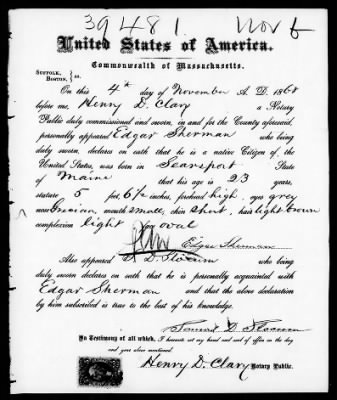 39481 Nov 6
United States of America.
Commonwealth of Massachusetts.
SUFFOLK,
BOSTON, } ss.
On this 4th day of November A. D. 1868
before me, Henry D. Clary a Notary
Public duly commissioned and sworn, in and for the County aforesaid,
personally appeared Edgar Sherman who being
duly sworn, declares on oath that he is a native Citizen of the
United States, was born in Searsport State
of Maine that his age is 23 years,
stature 5 feet, 6½ inches, forehead high, eyes grey
nose Grecian, mouth small, chin short, hair light brown
complexion light face oval
Edgar Sherman
Also appeared S. D. Slocum who being
duly sworn declares on oath that he is personally acquainted with
Edgar Sherman and that the above declaration
by him subscribed is true to the best of his knowledge.
Samuel D. Slocum
In Testimony of all which, I hereunto set my hand and seal of office on the day
and year above mentioned.
Henry D. Clary Notary Public.